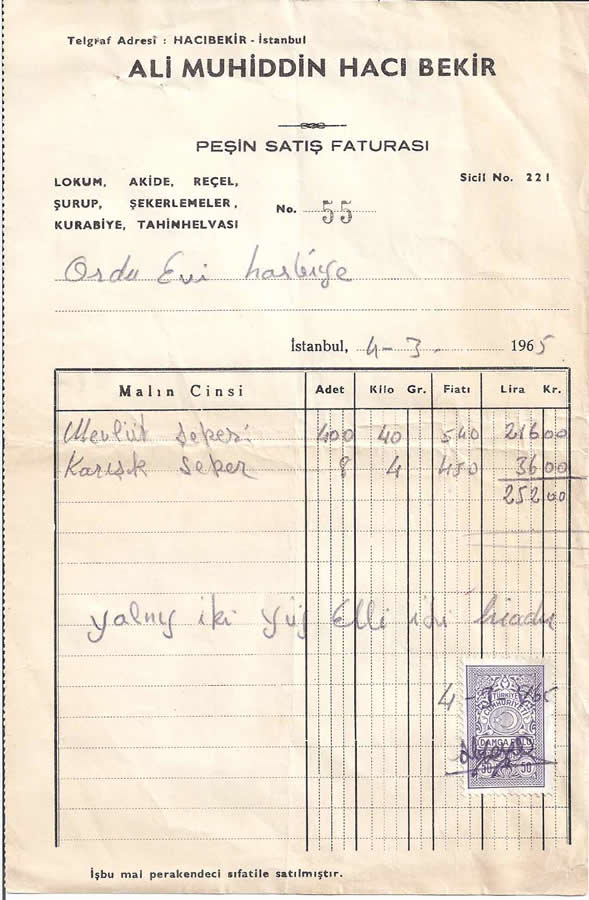 Telgraf Adresi : HACIBEKİR - İstanbul
ALİ MUHİDDİN HACI BEKİR
PEŞİN SATIŞ FATURASI
Sicil No. 221
LOKUM, AKİDE, REÇEL,
ŞURUP, ŞEKERLEMELER,
KURABİYE, TAHİNHELVASI
No. 55
Ordu Evi harbiye
İstanbul, 4-3. 1965
Malın Cinsi Adet Kilo Gr. Fiatı Lira Kr.
Mevlüt şekeri 400 40 540 216 00
Karışık şeker 8 4 36 00
252 00
yalnız iki yüz Elli iki liradır
4-3 965
TÜRKİYE
CUMHURİYETİ
DAMGA PULU
50 50
İşbu mal perakendeci sıfatile satılmıştır.